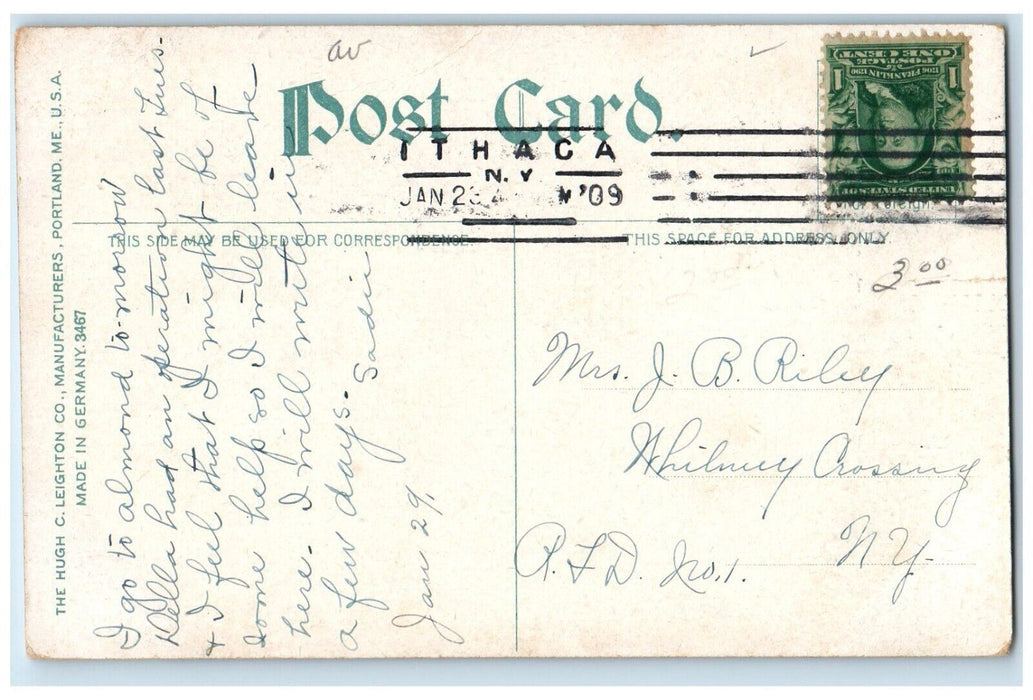 av
Post Card.
ITHACA
N.Y
JAN 29
'09
ONE CENT 1
POSTAGE
1706 FRANKLIN 1790
THIS SIDE MAY BE USED FOR CORRESPONDENCE.
THIS SPACE FOR ADDRESS ONLY.
3.00
THE HUGH C. LEIGHTON CO., MANUFACTURERS, PORTLAND, ME., U.S.A.
MADE IN GERMANY. 3467
I go to almond to-morrow
Della had an operation last Tues.
& I feel that I might be of
some help so I will leave
here. I will write in
a few days. Sadie
Jan 29,
Mrs. J. B. Riley
Whitney Crossing
N.Y.
R.F.D. No.1.